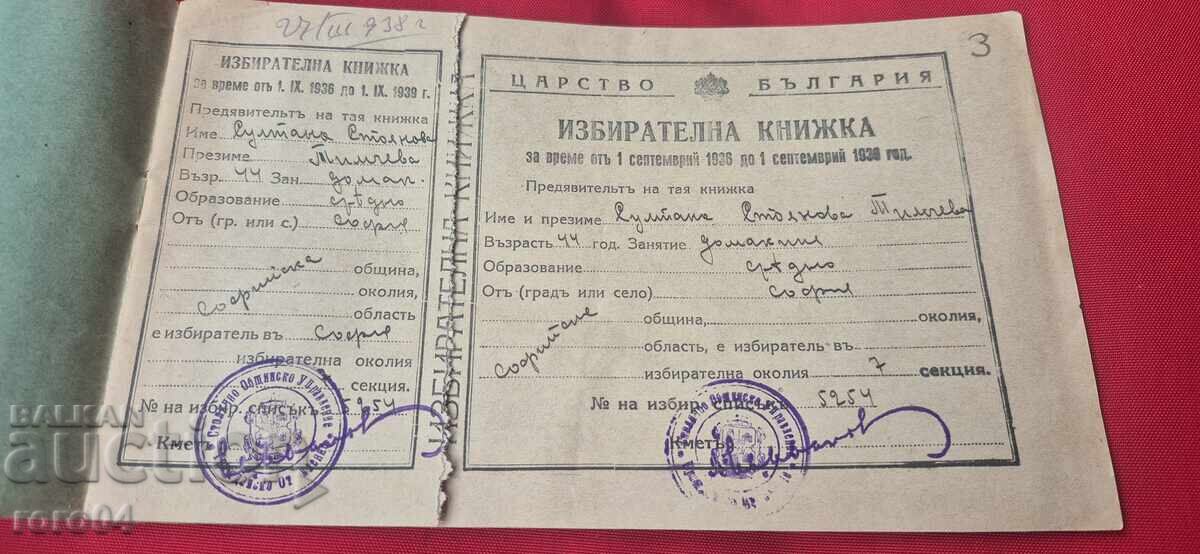 27/III 938 г
ИЗБИРАТЕЛНА КНИЖКА
за време отъ 1. IX. 1936 до 1. IX. 1939 г.
Предявительтъ на тая книжка
Име Султана Стоянова
Презиме Тимчева
Възр. 44 Зан. домак.
Образование срѣдно
Отъ (гр. или с.) София
община,
околия,
Софийска область
е избиратель въ София
избирателна околия
секция.
№ на избир. списъкъ 5254
Кметъ
ИЗБИРАТЕЛНА КНИЖКА
3
ЦАРСТВО БЪЛГАРИЯ
ИЗБИРАТЕЛНА КНИЖКА
за време отъ 1 септемврий 1936 до 1 септемврий 1939 год.
Предявительтъ на тая книжка
Име и презиме Султана Стоянова Тимчева
Възрасть 44 год. Занятие домакиня
Образование срѣдно
Отъ (градъ или село) София
община, околия,
Софийска область, е избиратель въ
избирателна околия 7 секция.
№ на избир. списъкъ 5254
Кметъ
Столично Общинско Управление
Столично Общинско Управление
BALKAN
auction
roro04